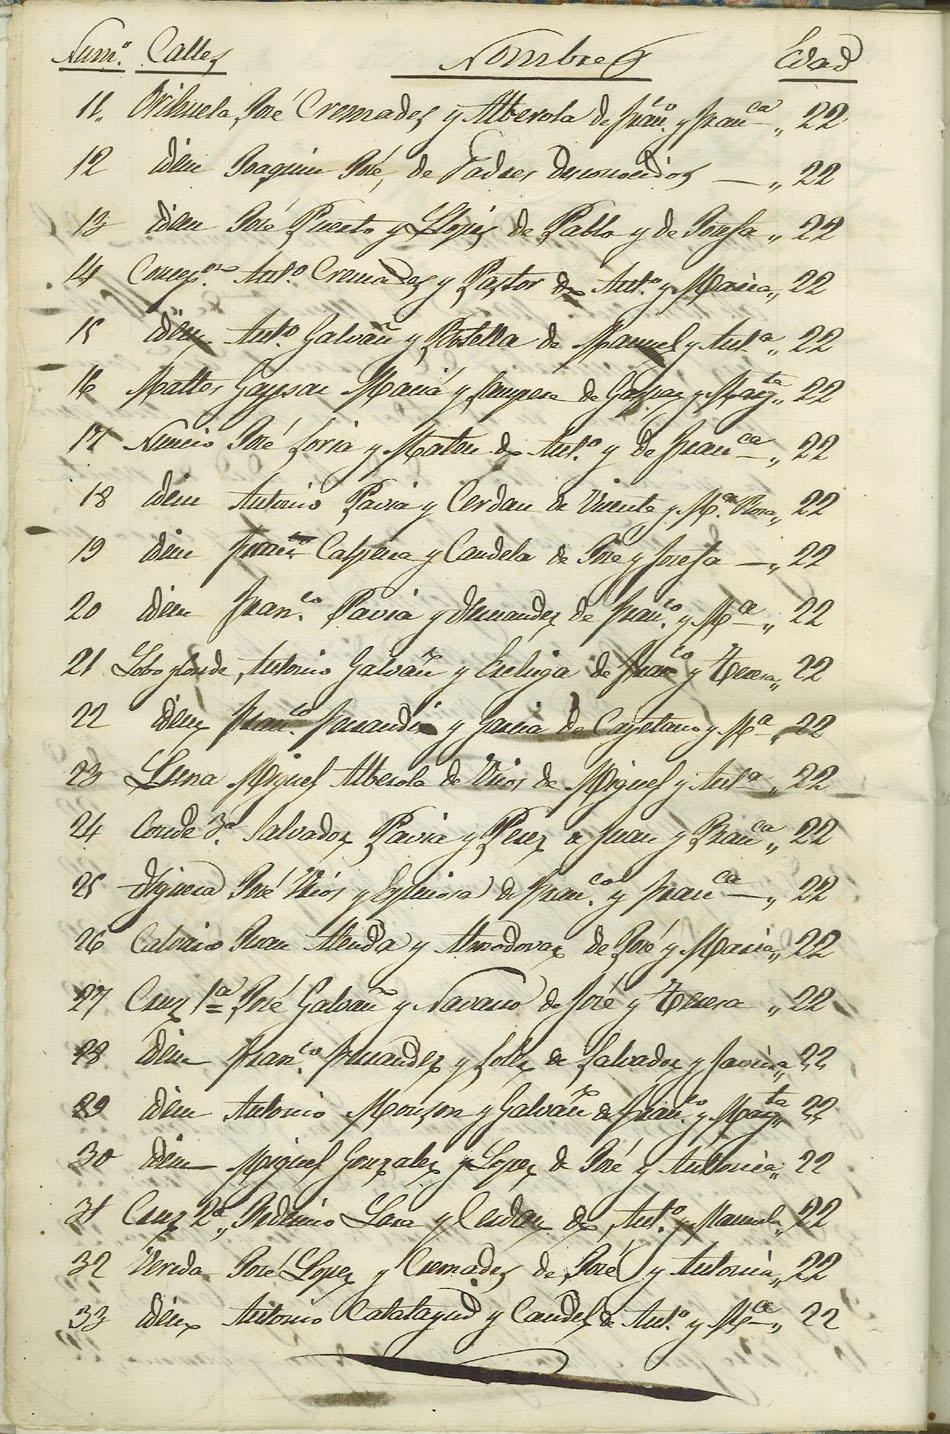 Num.º Calles Nombres Edad
11. Orihuela, José Cremades y Alberola de Fran.co y Fran.ca — „ 22
12 idem Joaquin José, de Padres desconocidos — „ 22
13 idem José Puerto y Llopis de Pablo y de Josefa „ 22
14 Concep.on Ant.º Cremades y Pastor de Ant.º y Maria „ 22
15 idem Ant.º Galvañ y Botella de Manuel y Ant.a „ 22
16 Gaspar Maciá y Sempere de Gaspar y Marg.ta „ 22
17 Nuncio José Soria y de Ant.º y de Fran.ca — „ 22
18 idem Antonio Pavia y Cerdan de Vicente y M.a Rosa „ 22
19 idem Fran.co Calpena y Candela de José y Josefa — „ 22
20 idem Fran.co Pavia y Hernandez de Fran.co y M.a „ 22
21 Antonio Galvañ y de Fran.co y Teresa „ 22
22 idem Fran.co y Garcia de Cayetano y M.a „ 22
23 Luna Miguel Alberola de Rios de Miguel y Ant.a „ 22
24 Conde 3.a Salvador Pavia y Perez de Juan y Fran.ca „ 22
25 José Rios y Espinosa de Fran.co y Fran.ca — „ 22
26 Calvario Juan Abenda y Almodovar de José y Maria „ 22
27 Cruz 1.a José Galvañ y Navarro de José y Teresa „ 22
28 idem Fran.co Fernandez y Soler de Salvador y „ 22
29 idem Antonio Monzon y Galvañ de Fran.co y Marg.ta „ 22
30 idem Miguel Gonzalez y Lopez de José y Antonia „ 22
31 Cruz 2.a „ y Cerdan de Ant.º y Manuela „ 22
32 Vereda José Lopez y Cremades de José y Antonia „ 22
33 idem Antonio Calatayud y Candela de Ant.º y M.a — „ 22